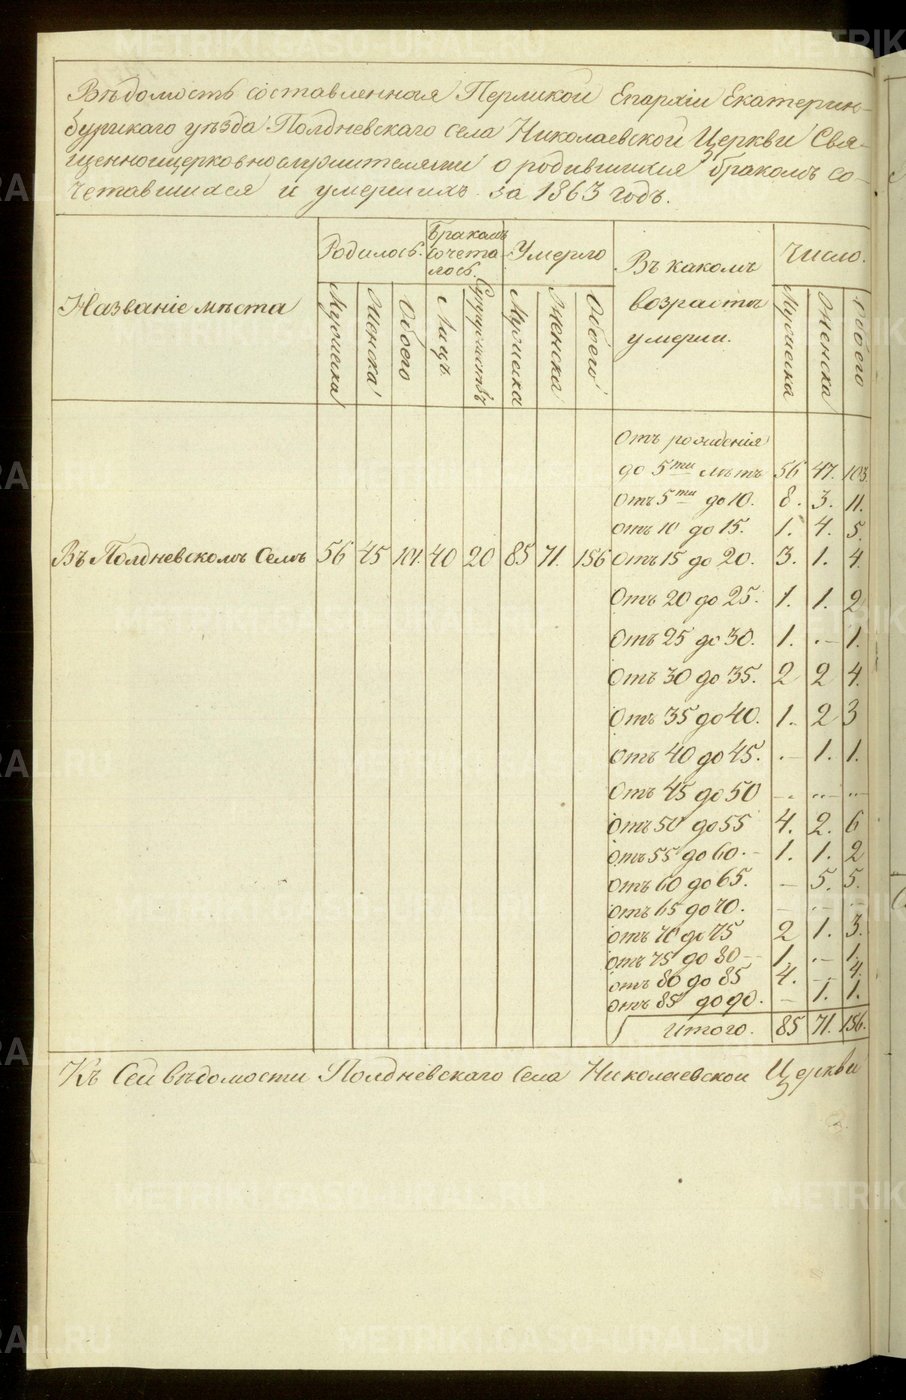 Вѣдомость составленная Пермской Епархіи Екатерин-
бургскаго уѣзда Полдневскаго села Николаевской Церкви Свя-
щенноцерковнослужителями о родившихся бракомъ со-
четавшихся и умершихъ за 1863 годъ.
Названіе мѣста
Родилось.
Бракомъ сочета- лось.
Умерло
Въ какомъ возрастѣ умерли.
Число.
Мужеска Женска Обоего Лицъ. Супружествъ Мужеска Женска Обоего Мужеска Женска Обоего
Отъ рожденія
до 5ти лѣтъ 56 47. 103.
Отъ 5ти до 10. 8. 3. 11.
Отъ 10 до 15. 1. 4. 5.
Въ Полдневскомъ Селѣ 56 45 101. 40 20 85 71. 156 Отъ 15 до 20. 3. 1. 4.
Отъ 20 до 25. 1. 1. 2
Отъ 25 до 30. 1. .- 1.
Отъ 30 до 35. 2 2 4.
Отъ 35 до 40. 1. 2 3
Отъ 40 до 45. .- 1. 1.
Отъ 45 до 50 -. ..- ..-
Отъ 50 до 55 4. 2. 6
Отъ 55 до 60.- 1. 1. 2
Отъ 60 до 65. - 5. 5.
Отъ 65 до 70. - .- .-
Отъ 70 до 75 2 1. 3.
Отъ 75 до 80-- 1. .- 1.
Отъ 80 до 85 4. .- 4.
Отъ 85 до 90. - 1. 1.
Итого. 85 71. 156.
Къ Сей вѣдомости Полдневскаго села Николаевской Церкви
METRIKI.GASO-URAL.RU